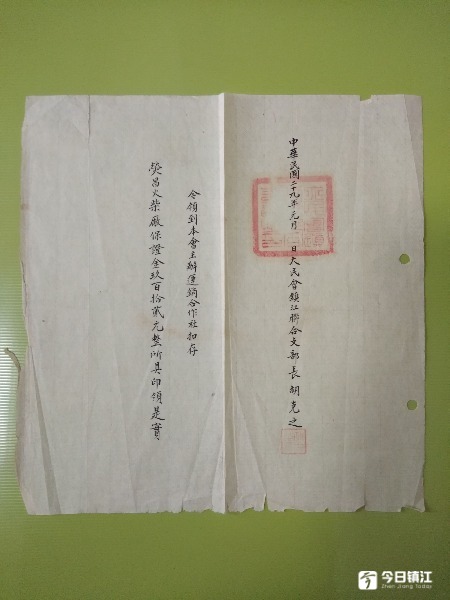 今領到本會主辦運銷合作社扣存
熒昌火柴廠保證金玖百拾貳元整所具印領是實
中華民國二十九年元月 日大民會鎮江聯合支部長胡克之
今日镇江
Zhen Jiang Today